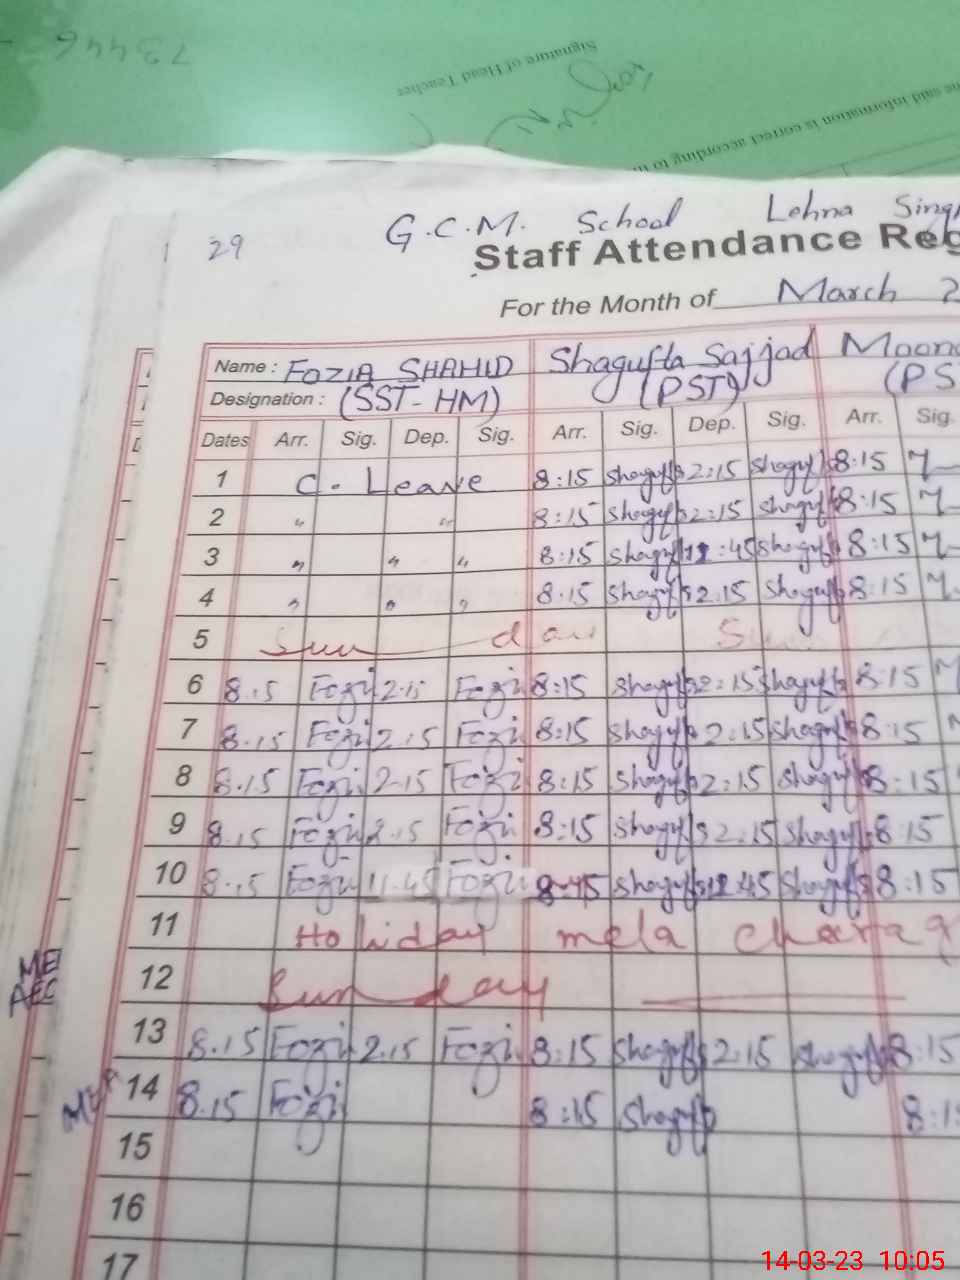 73446
Signature of Head Teacher
he said information is correct according to
29
G.C.M. School Lehna Sing
Staff Attendance Reg
For the Month of March 2
Name : FOZIA SHAHID Shagufta Sajjad Moon
Designation : (SST-HM) (PST) (PS
Dates Arr. Sig. Dep. Sig. Arr. Sig. Dep. Sig. Arr. Sig.
1 C. Leave 8:15 Shaguf 2:15 Shaguf 8:15
2 " " 8:15 Shaguf 2:15 Shaguf 8:15
3 " " " 8:15 Shaguf :45 Shaguf 8:15
4 " " " 8:15 Shaguf 2:15 Shaguf 8:15
5 Sun day
6 8.15 Fozi 2.15 Fozi 8:15 Shaguf 2:15 Shaguf 8:15
7 8.15 Fozi 2.15 Fozi 8:15 Shaguf 2:15 Shaguf 8:15
8 8.15 Fozi 2.15 Fozi 8:15 Shaguf 2:15 Shaguf 8:15
9 8.15 Fozi 2.15 Fozi 8:15 Shaguf 2:15 Shaguf 8:15
10 8.15 Fozi 11.45 Fozi Shaguf 12:45 Shaguf 8:15
11 Holiday mela charag
12 Sunday
13 8.15 Fozi 2.15 Fozi 8:15 Shaguf 2:15 Shaguf 8:15
14 8.15 Fozi 8:15 Shaguf 8:1
15
16
17
14-03-23 10:05